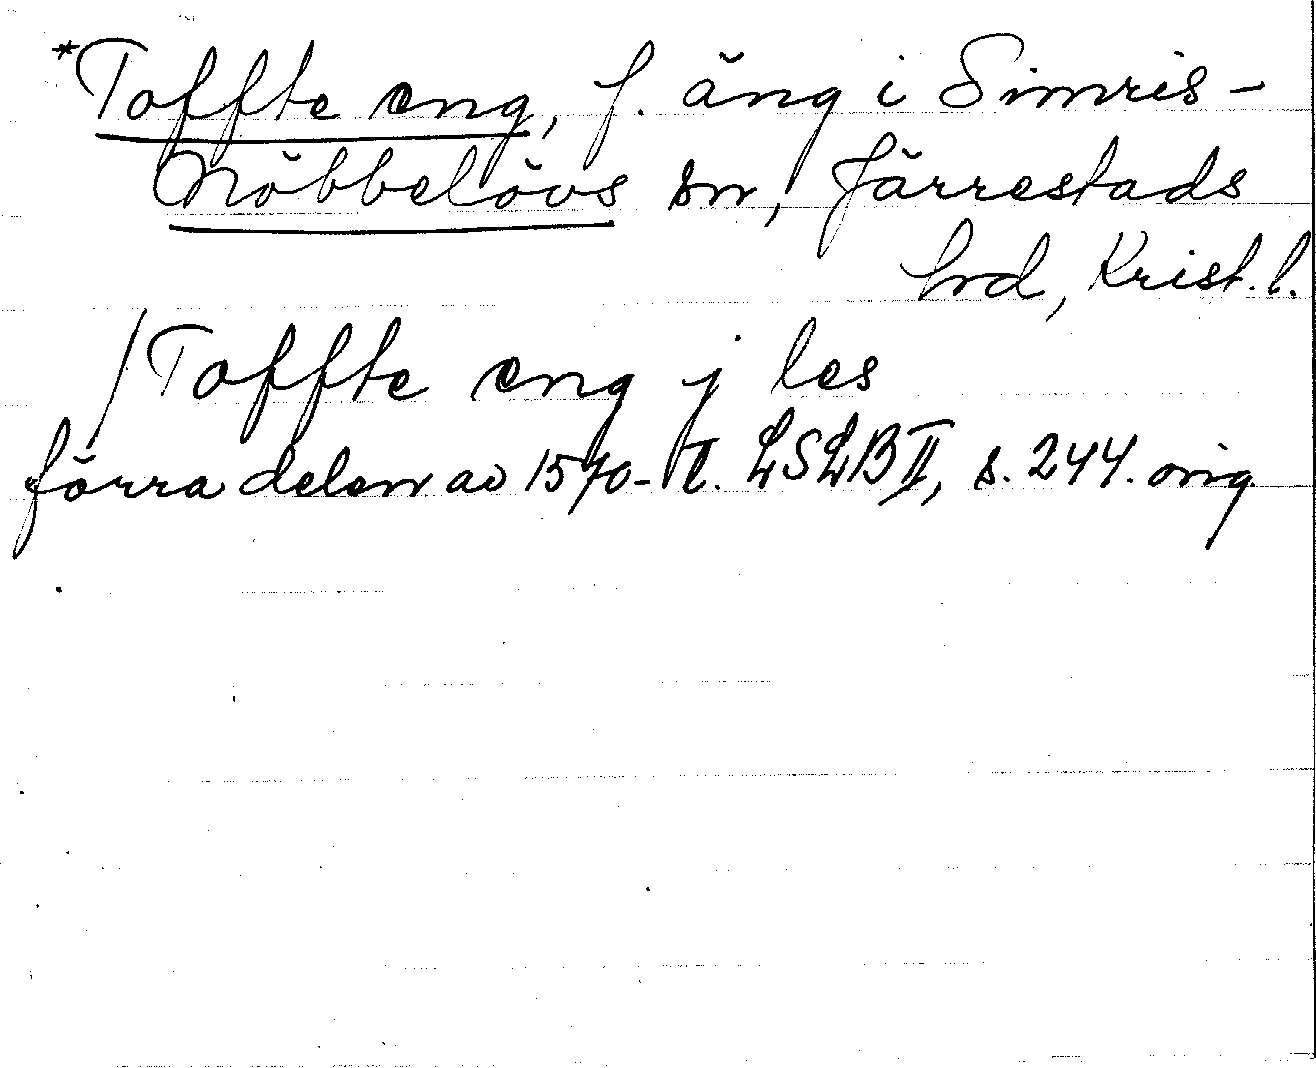 *Toffte eng, f. äng i Simris-
Nöbbelövs sn, Järrestads
hrd, Krist. l.
/Toffte eng j les
förra delen av 1570-t. LSLB II, s. 244. orig